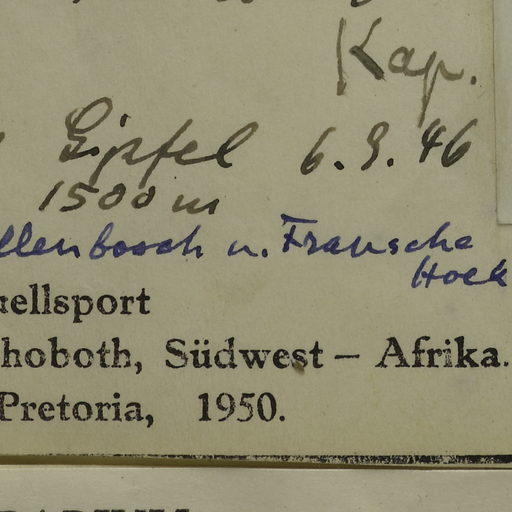 Kap.
Gipfel 6.9.46
1500 m
llenbosch u. Fransche
Hoek
uellsport
hoboth, Südwest – Afrika.
Pretoria, 1950.